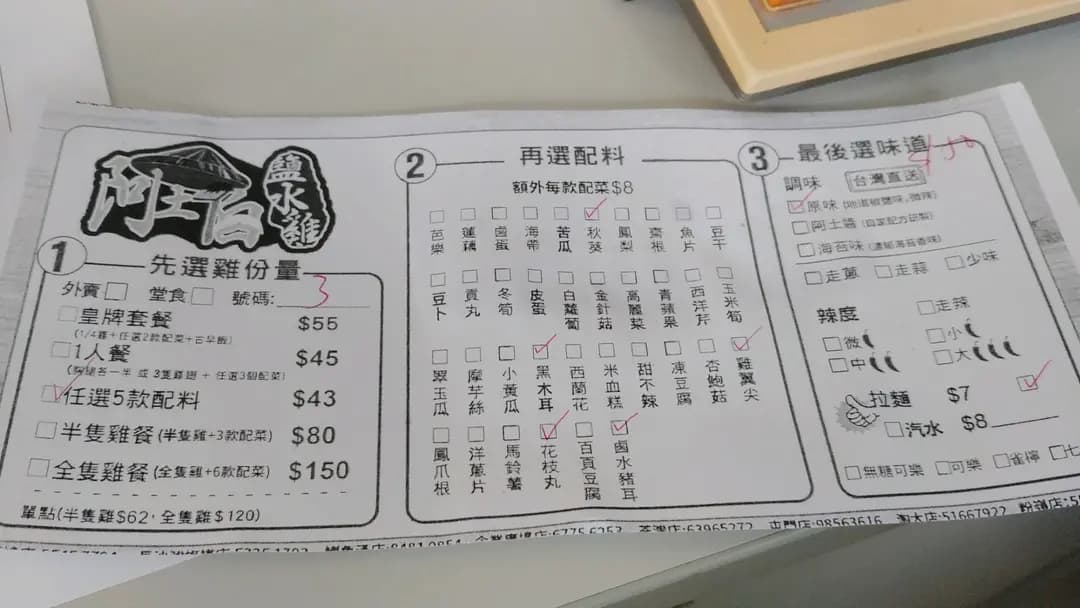 阿土伯
鹽水雞
1 先選雞份量
外賣□ 堂食□ 號碼:3
□皇牌套餐 $55
(1/4雞+任選2款配菜+古早飯)
□1人餐 $45
(胸腿各一半 或 3隻雞翅 + 任選3個配菜)
☑任選5款配料 $43
□半隻雞餐(半隻雞+3款配菜) $80
□全隻雞餐(全隻雞+6款配菜) $150
單點(半隻雞$62, 全隻雞$120)
2 再選配料
額外每款配菜$8
□芭樂 □蓮藕 □鹵蛋 □海帶 □苦瓜 ☑秋葵 □鳳梨 □齋根 □魚片 □豆干
□豆卜 □貢丸 □冬筍 □皮蛋 □白蘿蔔 □金針菇 □高麗菜 □青蘋果 □西洋芹 □玉米筍
□翠玉瓜 □摩芋絲 □小黃瓜 ☑黑木耳 □西蘭花 □米血糕 □甜不辣 □凍豆腐 □杏鮑菇 ☑雞翼尖
□鳳爪根 □洋蔥片 □馬鈴薯 ☑花枝丸 □百頁豆腐 ☑鹵水豬耳
3 最後選味道
調味 台灣直送
☑原味(地道椒鹽味,微辣)
□阿土醬(自家配方研製)
□海苔味(濃郁海苔香味)
□走蔥 □走蒜 □少味
辣度 □走辣
□微 □小
□中 □大
拉麵 $7 ☑
□汽水 $8
□無糖可樂 □可樂 □雀檸 □七
金發廣場店:6775 6253 荃灣店:63965272 屯門店:98563616 淘大店:51667922 粉嶺店:55